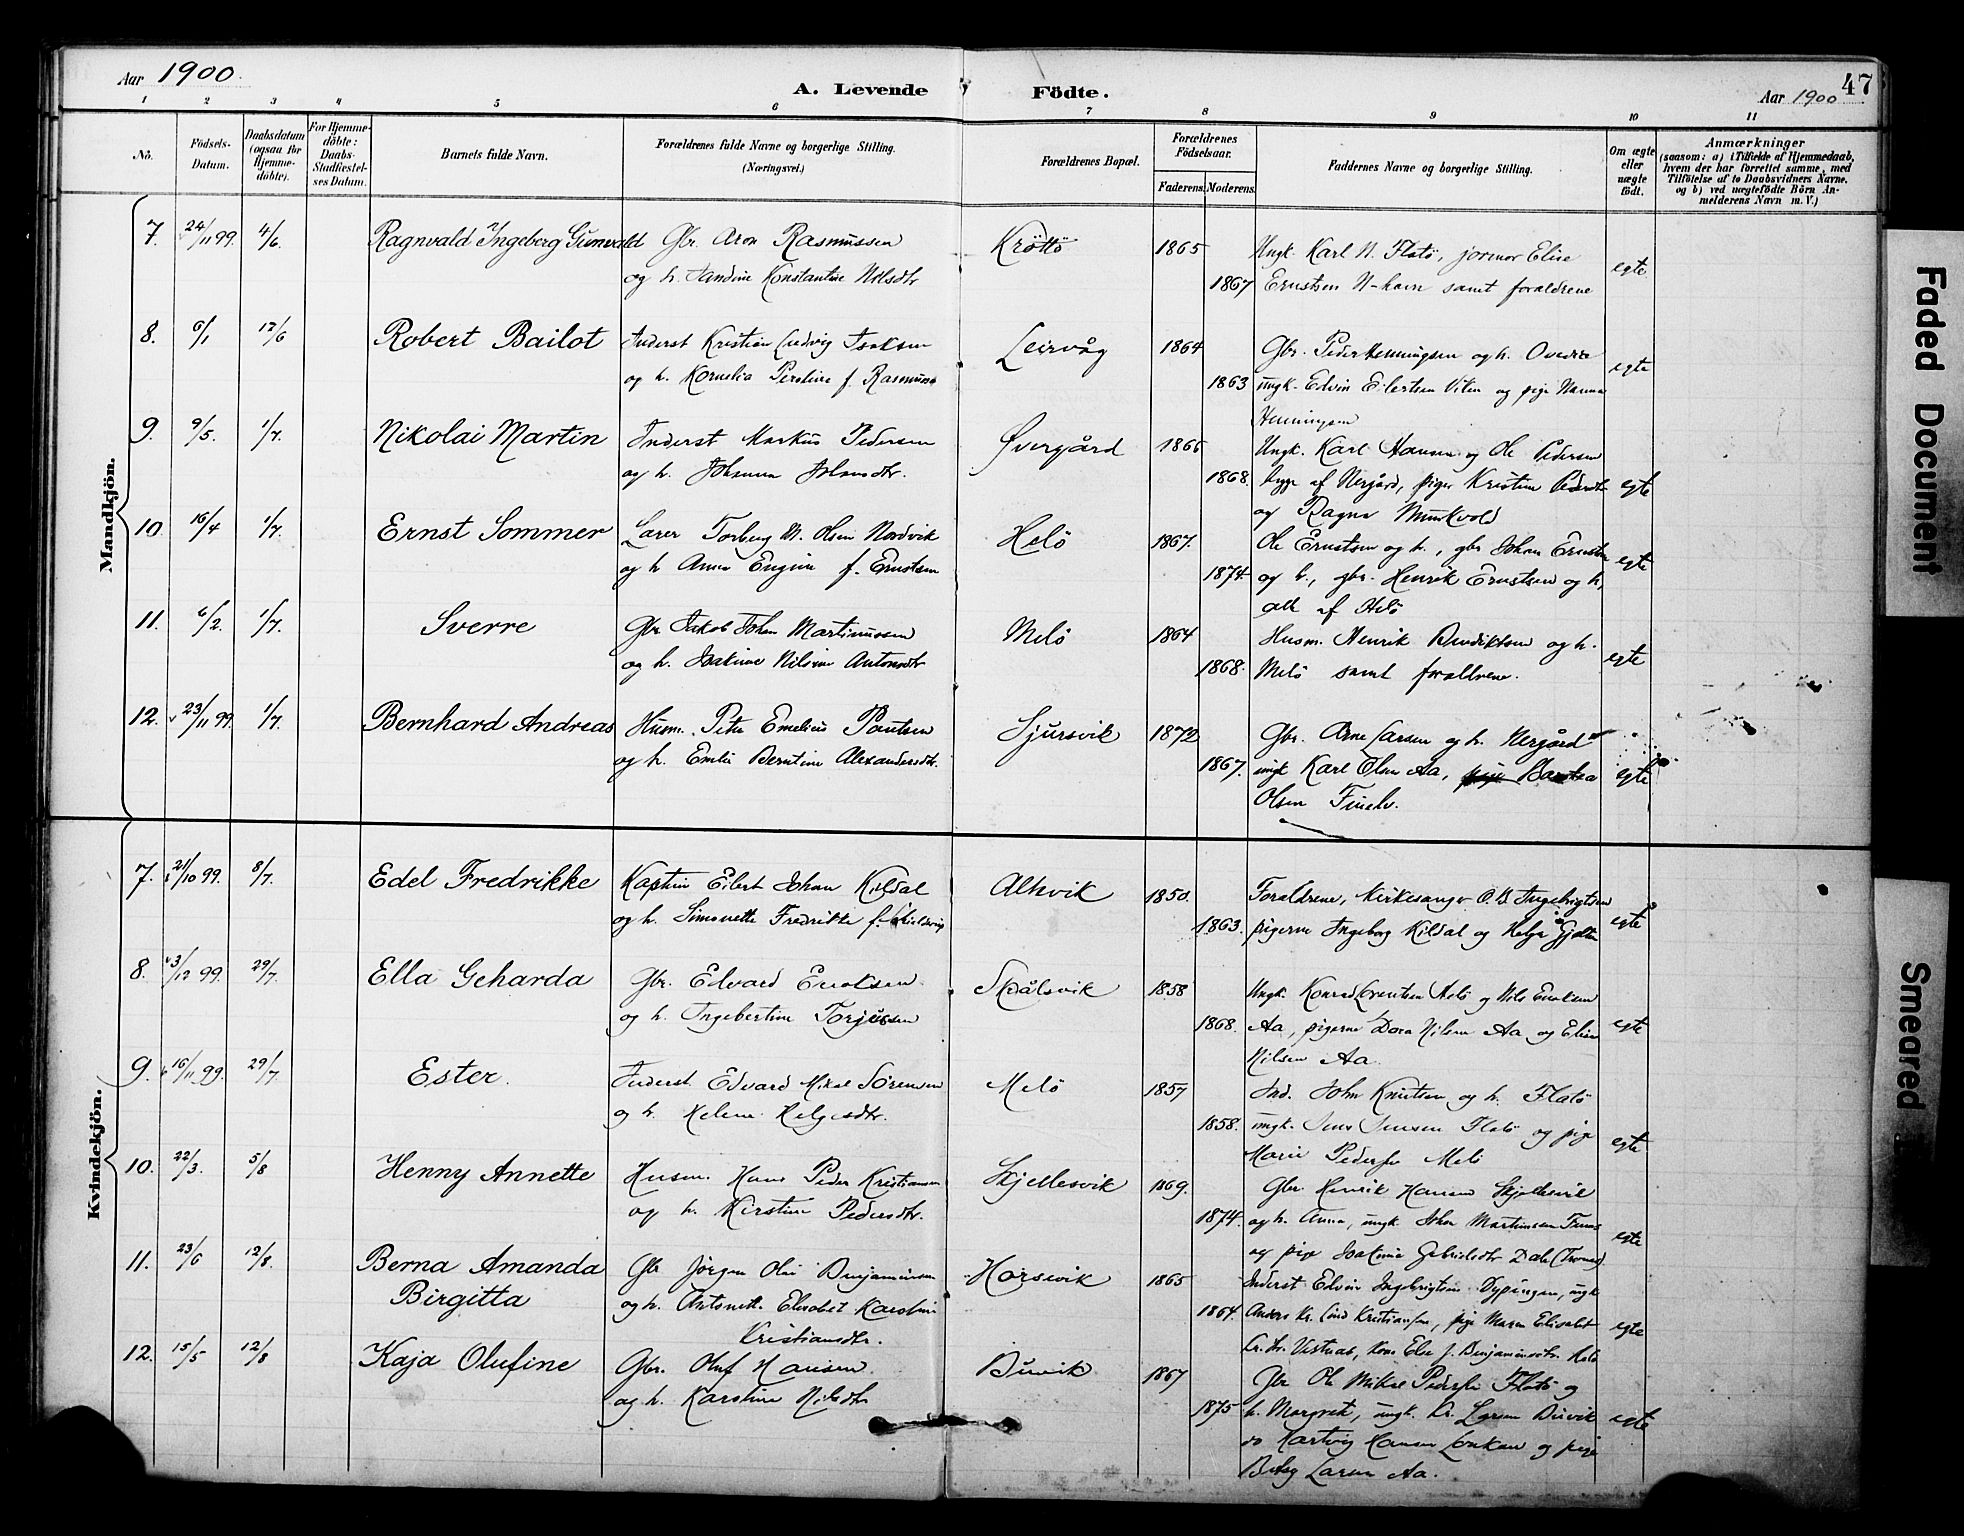 Aar 1900.
A. Levende Födte.
Aar 1900
47
1 2 3 4 5 6 7 8 9 10 11
No.
Födsels-Datum.
Daabsdatum (ogsaa for Hjemme-döbte).
For Hjemme-döbte: Daabs-Stadfæstel-ses Datum.
Barnets fulde Navn.
Forældrenes fulde Navne og borgerlige Stilling. (Næringsvei.)
Forældrenes Bopæl.
Forældrenes Födselsaar.
Faderens. Moderens.
Faddernes Navne og borgerlige Stilling.
Om ægte eller uægte födt.
Anmærkninger
(saasom: a) i Tilfælde af Hjemmedaab, hvem der har forrettet samme, med Tilföielse af to Daabsvidners Navne, og b) ved uægtefödte Börn An-melderens Navn m. V.)
Mandkjön.
7. 24/11 99. 4/6. Ragnvald Ingeberg Gunvald Gbr. Aron Rasmussen Kröttö 1865 Ungk. Karl N. Flatö, jormor Elise
og h. Sandine Konstantine Nilsdtr 1867 Ernstsen N-havn samt forældrene egte.
8. 6/1 17/6 Robert Bailot Inderst Kristian Ludvig Isaksen Leirvåg 1864 Gbr. Peder Henningsen og h. Ovedia
og h. Kornelia Perstine f. Rasmuss 1863 ungk. Edvin Eilertsen Viten og pige Hanna egte
Henningsen
9. 9/5. 1/7. Nikolai Martin Inderst Markus Pedersen Övergård 1865 Ungk. Karl Hansen og Ole Pedersen
og h. Johanna Johansdtr. 1868. begge af Nergård, piger Kristine Pedersdtr egte
og Ragna Munkvold
10. 16/4 1/7. Ernst Sommer Lærer Torberg M. Olsen Nordvik Helö 1867. Ole Ernstsen og h., gbr Johan Ernstsen
og h Anna Eugine f. Ernstsen 1874. og h., gbr. Henrik Ernstsen og h, egte
alle af Helö
11. 6/2. 1/7. Sverre Gbr. Jakob Johan Martinussen Melö 1864 Husm. Henrik Bendiktsen og h.
og h. Joakime Nilsine Antonsdtr 1868. Melö samt forældrene. egte
12. 23/11 99. 1/7. Bernhard Andreas Husm. Peter Emelius Poulsen Sjursvik 1872 Gbr. Arne Larsen og h. Nergård
og h. Emilie Berntine Alexandersdtr. 1867. ungk Karl Olsen Aa, egte
Olsen
Kvindekjön.
7. 21/10 99. 8/7. Edel Fredrikke Kaptein Eilert Johan Kildal Alhvik 1850. Forældrene, Kirkesanger O. B. Ingebrigtsen
og h. Simonette Fredrikke f. 1863. pigerne Ingeborg Kildal og Helga egte
8. 3/12 99. 29/7. Ella Geharda Gbr. Edvard Enoksen Skålsvik 1858 Ungk. Konrad Lorentsen Helö og Nils Enoksen
og h. Ingebertine Torjussen 1868. Aa, pigerne Dora Nilsen Aa og Elise egte
Nilsen Aa.
9. 16/11 99. 29/7 Ester. Inderst Edvard Mikal Sörensen Melö 1857 Ind. John Knutsen og h. Flatö
og h. Helene Helgesdtr. 1858. ungk. Jens Jensen Flatö og pige egte
Marie Peders. Melö
10. 22/3. 5/8 Henny Annette Husm. Hans Peder Kristiansen Skjellesvik 1869. Gbr. Henrik Hansen Skjellesvik
og h. Kirstine Pedersdtr. 1874. og h. Anna, ungk. Johan Martinsen egte
og pige Joakime Gabrielsdtr Dale
11. 23/6 12/8. Berna Amanda Gbr Jörgen Olai Benjaminsen Horsvik 1865 Inderst Edvin Ingebrigtsen Dypingen, ungk
Birgitta og h. Antonette Elisabet Karoline 1864. Anders Kr. Kristiansen, pige Maren Elisabet egte
Kristiansdtr.
12. 15/5 12/8 Kaja Olufine Gbr. Oluf Hansen Buvik 1867 Gbr Ole Mikal Pedersen Flatö og
og h. Karoline Nilsdtr 1875. h. Margret, ungk. Kr. Larsen Buvik egte
do Hartvig Hansen og pige
Larsen Aa.
Faded Document
Smeared